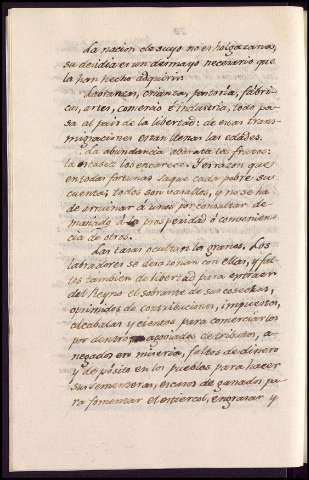 La nacion de suyo no es holgazana,
su desidia es un desmayo necesario que
la han hecho adquirir.
Labranza, crianza, pastoria, fabri-
cas, artes, comercio è industria, todo pa-
sa al pais de la libertad: de esas trans-
migraciones estan llenas las edades.
La abundancia abarata los frutos:
la escasèz los encarece. Y es razon que
en todas fortunas saque cada pobre su
cuenta; todos son vasallos, y no se ha
de arruinar à unos por consultar de-
masiado à la prosperidad ò convenien-
cia de otros.
Las tasas ocultan los granos. Los
labradores se desazonan con ellas, y fal-
tos tambien de libertad para extraer
del Reyno el sobrante de sus cosechas,
oprimidos de contribuciones, impuestos,
alcabalas y cientos para comerciarlos
por dentro, agoviados de tributos, a-
negados en miseria, faltos de dinero
y de pósito en los pueblos para hacer
sus sementeras, escasos de ganados pa-
ra fomentar el estiercol, engrasar y